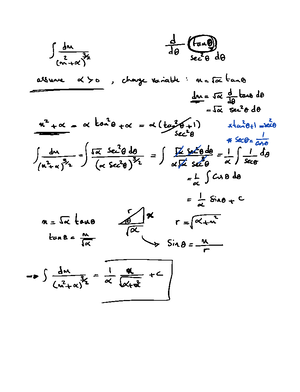 ∫ du / (u² + α)^{3/2}    d/dθ (tanθ)
sec²θ dθ
assume α > 0, change variable: u = √α tanθ
du = √α d/dθ tanθ dθ
du = √α sec²θ dθ
u² + α = α tan²θ + α = α (tan²θ + 1)    * tan²θ + 1 = sec²θ
sec²θ    * secθ = 1/cosθ
∫ du / (u² + α)^{3/2} = ∫ √α sec²θ dθ / (α sec²θ)^{3/2} = ∫ √α sec²θ dθ / α√α sec³θ = 1/α ∫ dθ / secθ
= 1/α ∫ cosθ dθ
= 1/α sinθ + c
u = √α tanθ    u    r = √(α + u²)
tanθ = u/√α    √α    sinθ = u/r
→ ∫ du / (u² + α)^{3/2} = 1/α u/√(α + u²) + c